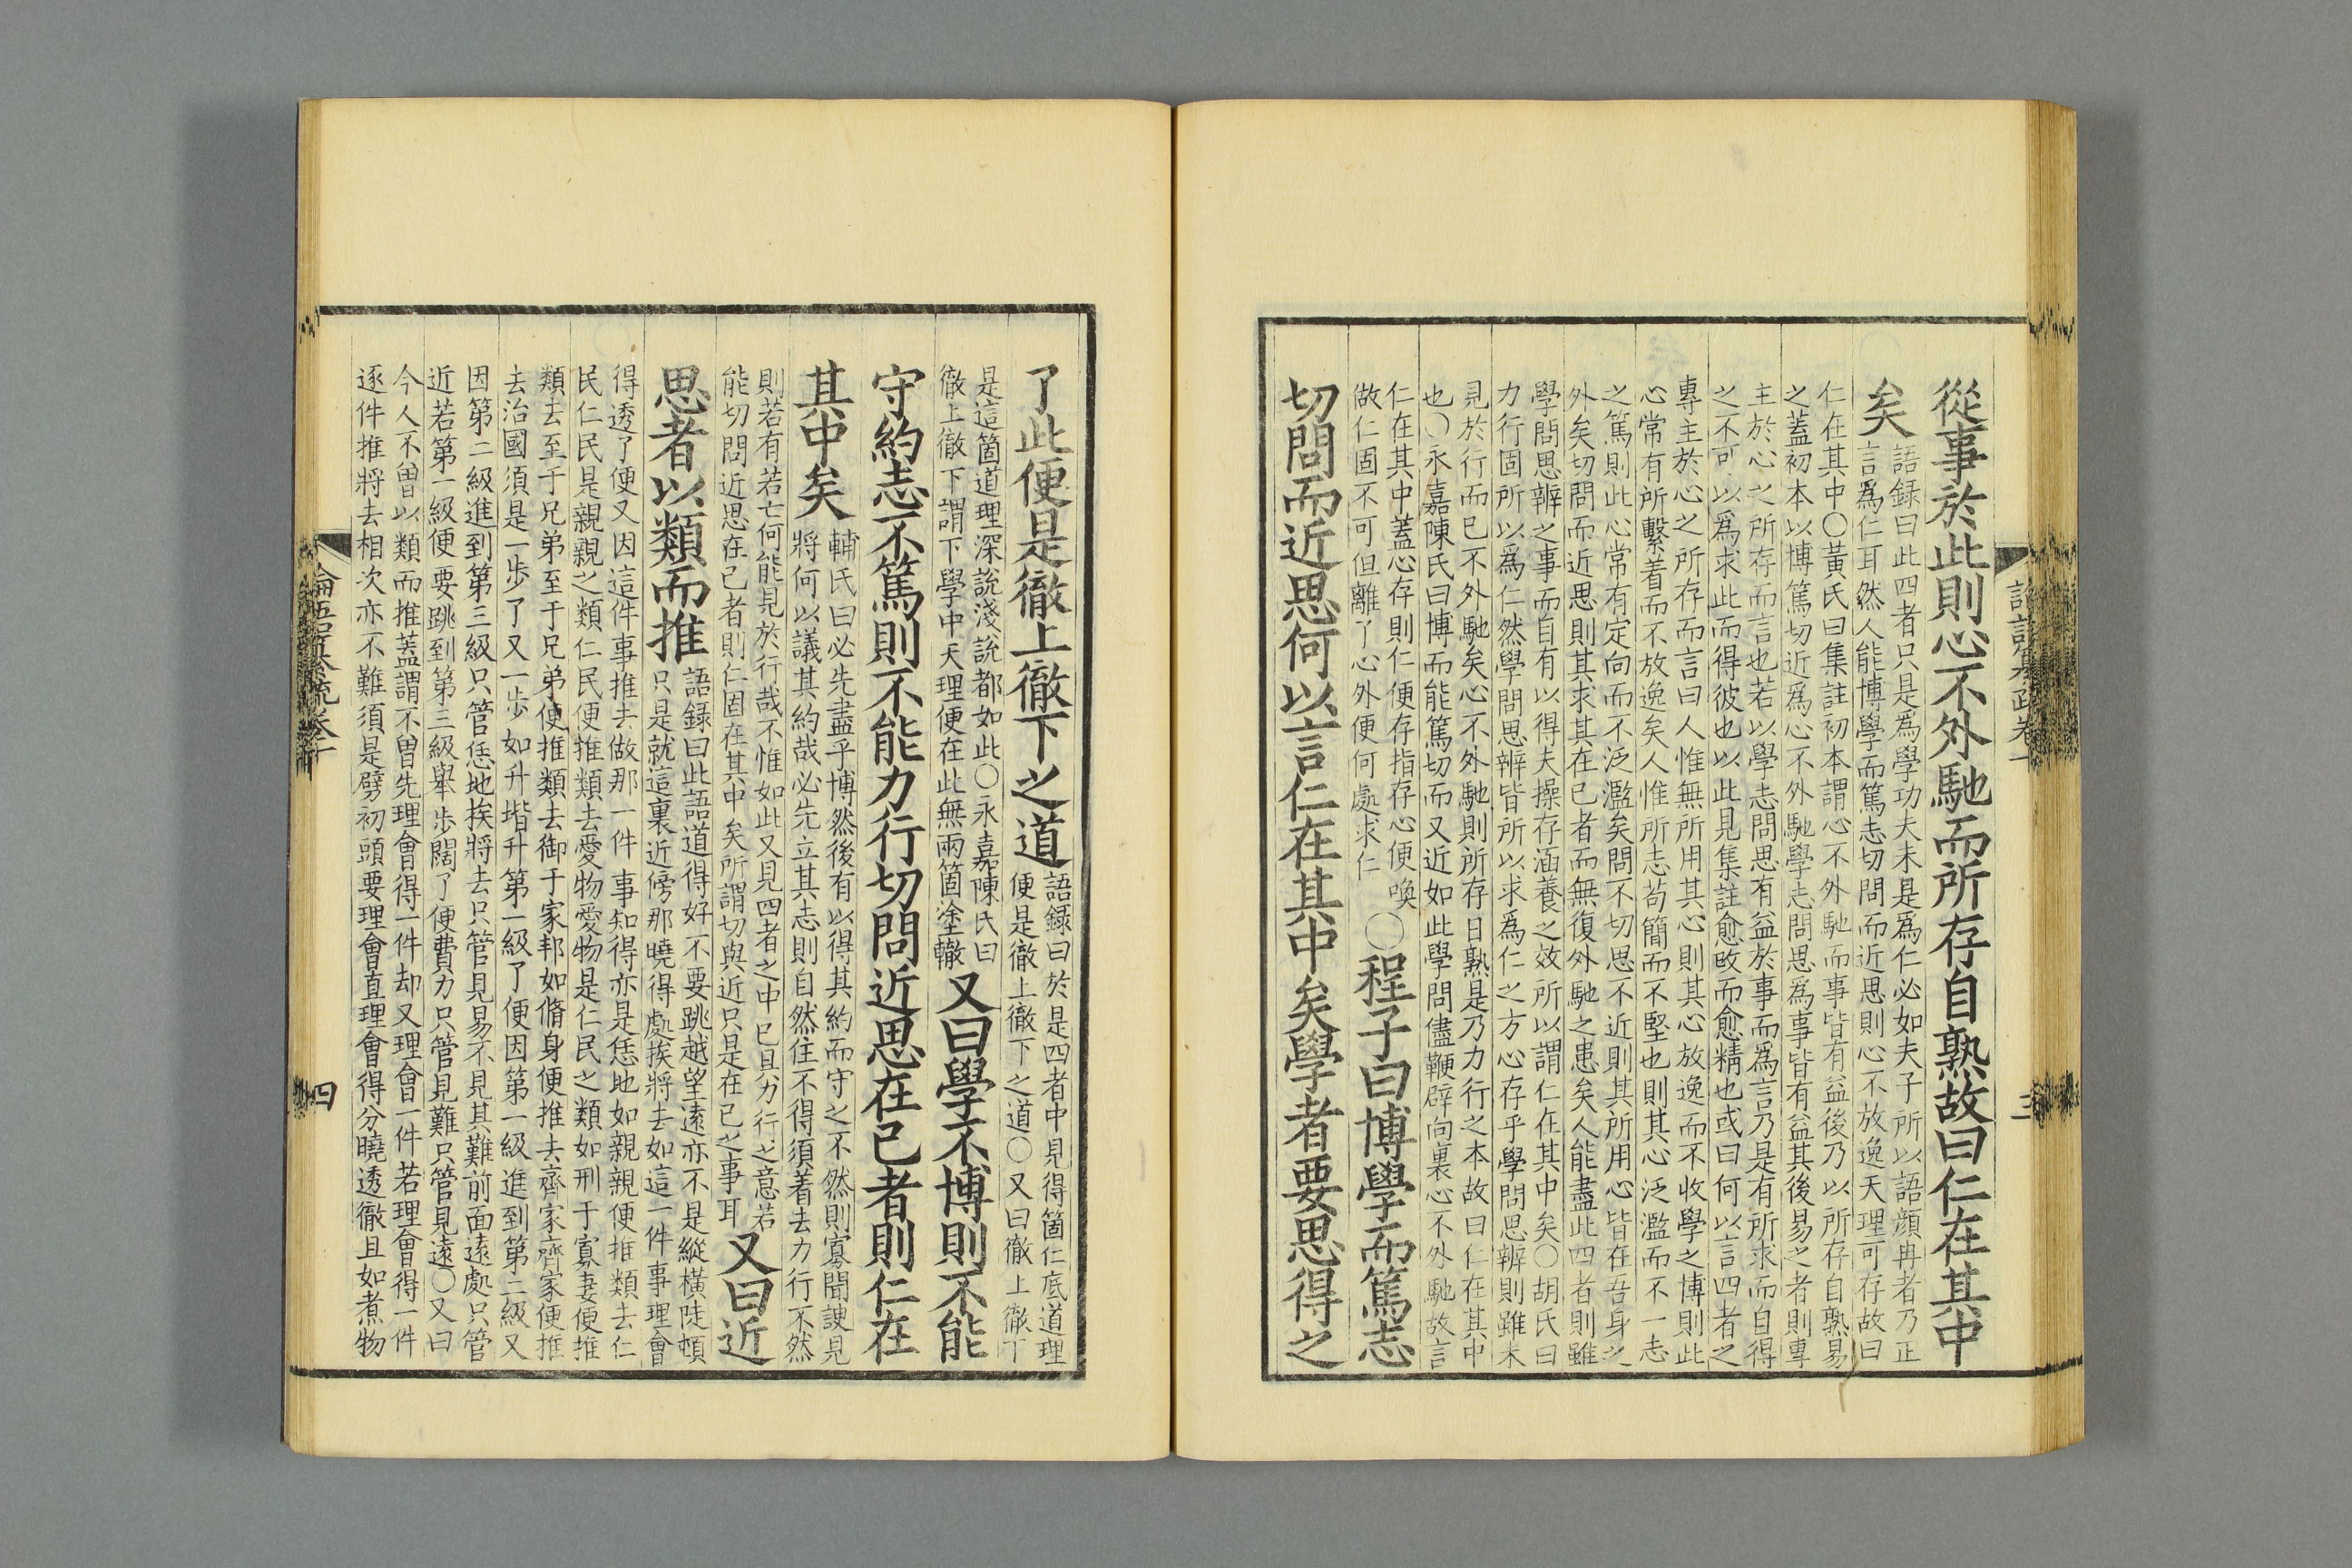 從事於此則心不外馳而所存自熟故曰仁在其中
矣
語録曰此四者只是爲學功夫未是爲仁必如夫子所以語顔冉者乃正
言爲仁耳然人能博學而篤志切問而近思則心不放逸天理可存故曰
仁在其中〇黄氏曰集註初本謂心不外馳而事皆有益後乃以所存自熟易
之蓋初本以博篤切近爲心不外馳學志問思爲事皆有益其後易之者則專
主於心之所存而言也若以學志問思有益於事而爲言乃是有所求而自得
之不可以爲求此而得彼也以此見集註愈改而愈精也或曰何以言四者之
專主於心之所存而言曰人惟無所用其心則其心放逸而不收學之博則此
心常有所繫着而不放逸矣人惟所志苟簡而不堅也則其心泛濫而不一志
之篤則此心常有定向而不泛濫矣問不切思不近則其所用心皆在吾身之
外矣切問而近思則其求其在己者而無復外馳之患矣人能盡此四者則雖
學問思辨之事而自有以得夫操存涵養之效所以謂仁在其中矣〇胡氏曰
力行固所以爲仁然學問思辨皆所以求爲仁之方心存乎學問思辨則雖未
見於行而已不外馳矣心不外馳則所存日熟是乃力行之本故曰仁在其中
也〇永嘉陳氏曰博而能篤切而又近如此學問儘鞭辟向裏心不外馳故言
仁在其中蓋心存則仁便存指存心便喚
做仁固不可但離了心外便何處求仁
〇程子曰博學而篤志
切問而近思何以言仁在其中矣學者要思得之
三
了此便是徹上徹下之道
語録曰於是四者中見得箇仁底道理
便是徹上徹下之道〇又曰徹上徹下
是這箇道理深說淺說都如此〇永嘉陳氏曰
徹上徹下謂下學中天理便在此無兩箇塗轍
又曰學不博則不能
守約志不篤則不能力行切問近思在己者則仁在
其中矣
輔氏曰必先盡乎博然後有以得其約而守之不然則寡聞諛見
將何以議其約哉必先立其志則自然住不得須着去力行不然
則若有若亡何能見於行哉不惟如此又見四者之中已具力行之意若
能切問近思在己者則仁固在其中矣所謂切與近只是在己之事耳
又曰近
思者以類而推
語録曰此語道得好不要跳越望遠亦不是縱橫陡頓
只是就這裏近傍那曉得處挨將去如這一件事理會
得透了便又因這件事推去做那一件事知得亦是恁地如親親便推類去仁
民仁民是親親之類仁民便推類去愛物愛物是仁民之類如刑于寡妻便推
類去至于兄弟至于兄弟便推類去御于家邦如脩身便推去齊家齊家便推
去治國須是一步了又一步如升堦升第一級了便因第一級進到第二級又
因第二級進到第三級只管恁地挨將去只管見易不見其難前面遠處只管
近若第一級便要跳到第三級舉步闊了便費力只管見難只管見遠〇又曰
今人不曾以類而推蓋謂不曾先理會得一件却又理會一件若理會得一件
逐件推將去相次亦不難須是劈初頭要理會直理會得分曉透徹且如煮物
論語纂疏卷十
四